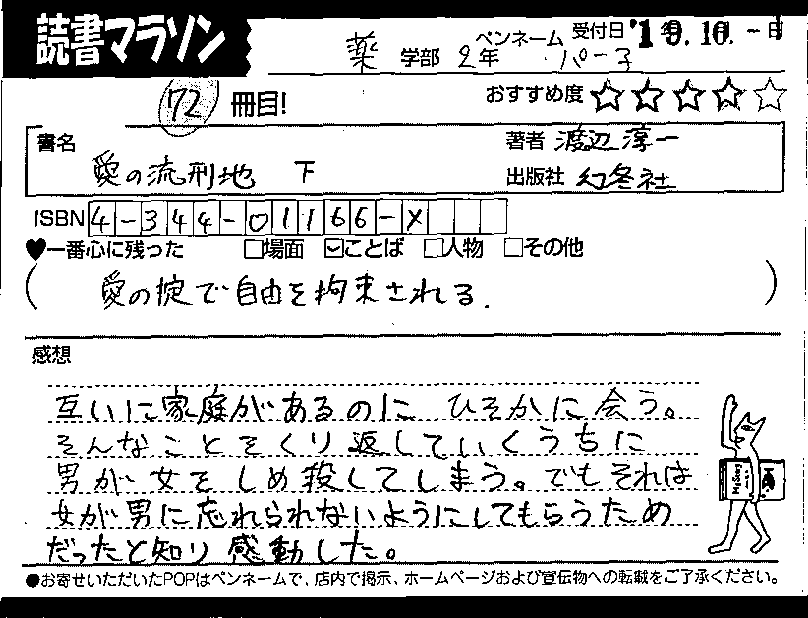 読書マラソン
薬 学部 2年 ペンネーム パー子 受付日 '10.10.-日
72 冊目! おすすめ度 ☆☆☆☆☆
書名 愛の流刑地 下
著者 渡辺淳一
出版社 幻冬社
ISBN 4-344-01166-X
♥一番心に残った □場面 ☑ことば □人物 □その他
(愛の掟で自由を拘束される.)
感想
互いに家庭があるのに ひそかに会う。
そんなことをくり返していくうちに
男が女をしめ殺してしまう。でもそれは
女が男に忘れられないようにしてもらうため
だったと知り感動した。
●お寄せいただいたPOPはペンネームで、店内で掲示、ホームページおよび宣伝物への転載をご了承ください。